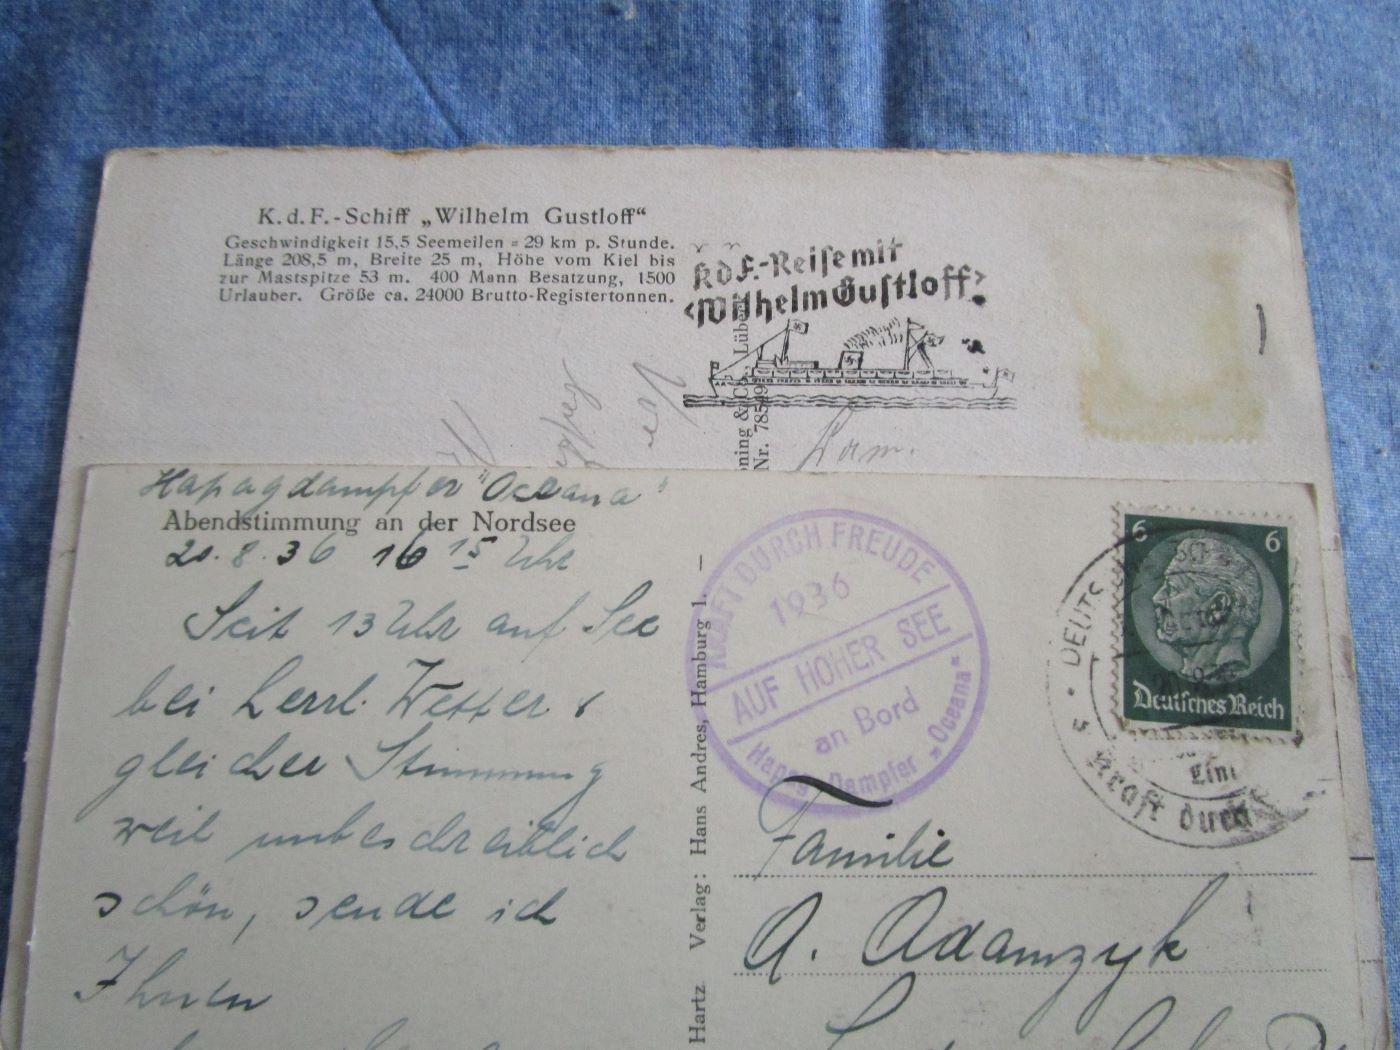 K.d.F.-Schiff „Wilhelm Gustloff“
Geschwindigkeit 15,5 Seemeilen = 29 km p. Stunde.
Länge 208,5 m, Breite 25 m, Höhe vom Kiel bis
zur Mastspitze 53 m. 400 Mann Besatzung, 1500
Urlauber. Größe ca. 24000 Brutto-Registertonnen.
KdF.-Reise mit
‹Wilhelm Gustloff›
Nr. 78549
Hapagdampfer "Oceana"
Abendstimmung an der Nordsee
20.8.36 16 15 Uhr
Seit 13 Uhr auf See
bei herrl. Wetter &
gleicher Stimmung
weil unbeschreiblich
schön, sende ich
Ihnen
Hartz Verlag: Hans Andres, Hamburg 1. —
KRAFT DURCH FREUDE
1936
AUF HOHER SEE
an Bord
Hapag Dampfer „Oceana“
6 6
Deutsches Reich
Kraft durch
Familie
A. Adamzyk